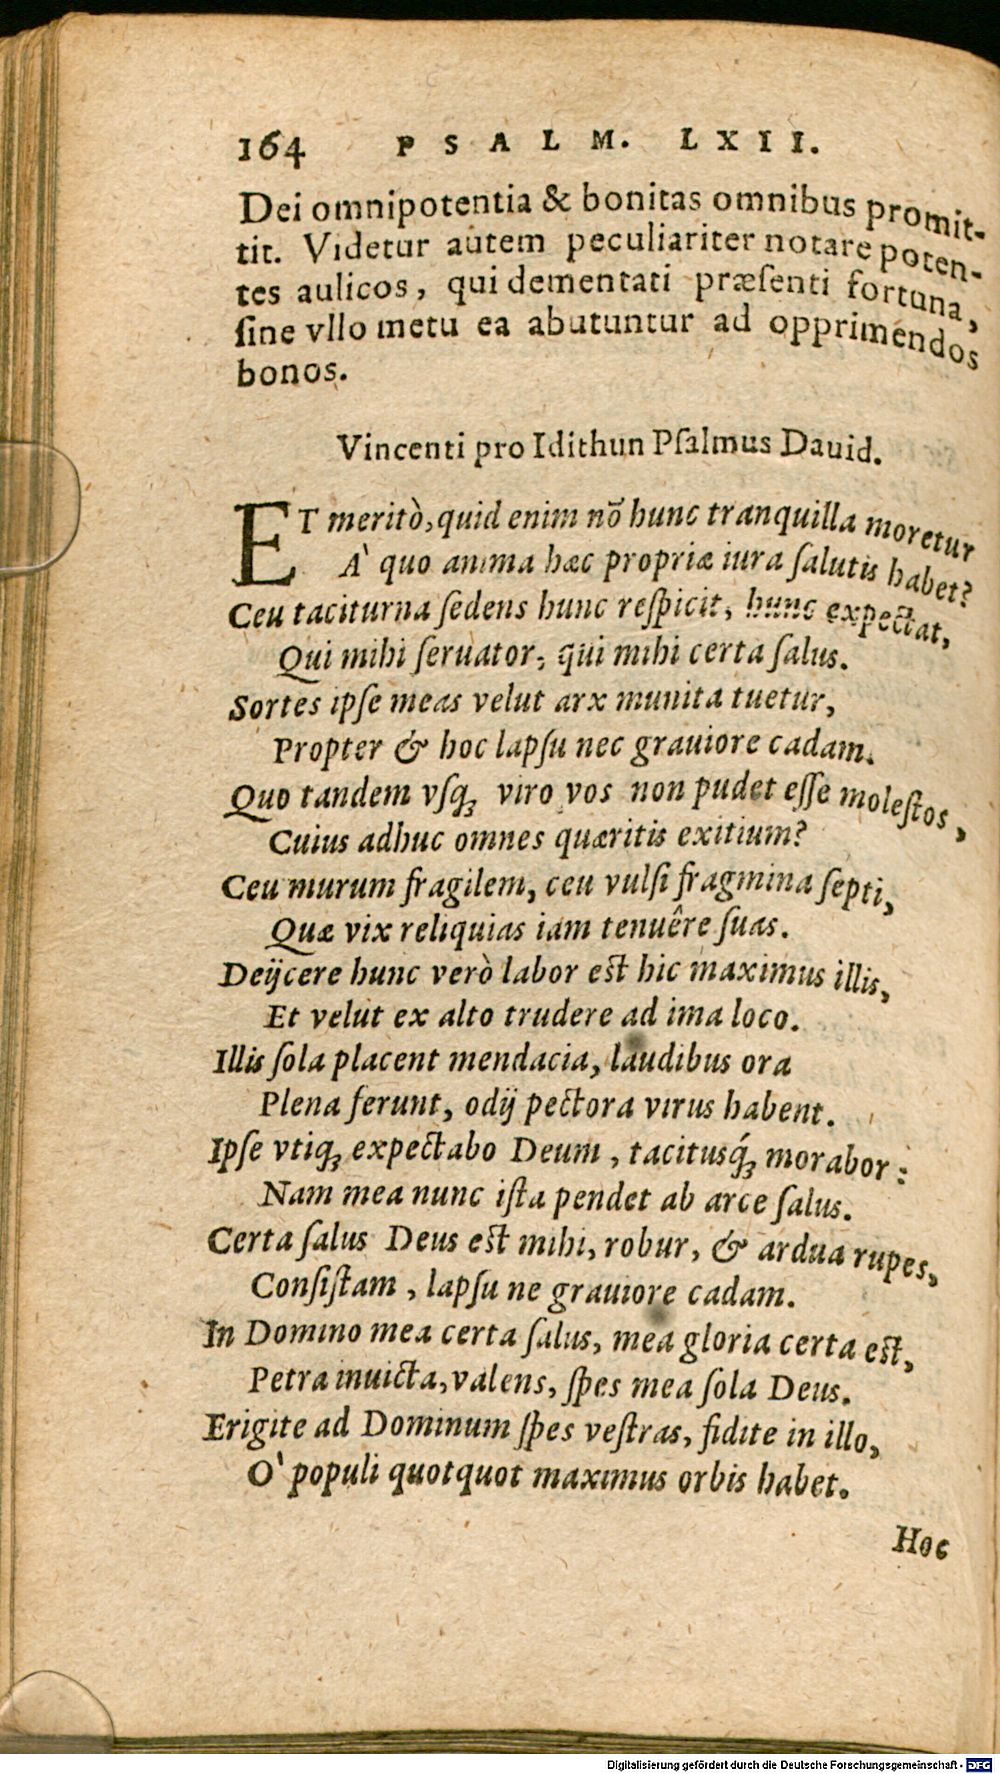 164 PSALM. LXII.
Dei omnipotentia & bonitas omnibus promit-
tit. Videtur autem peculiariter notare poten-
tes aulicos, qui dementati præſenti fortuna,
ſine vllo metu ea abutuntur ad opprimendos
bonos.
Vincenti pro Idithun Pſalmus Dauid.
ET meritò, quid enim nõ hunc tranquilla moretur
A' quo anima hæc propriæ iura ſalutis habet?
Ceu taciturna ſedens hunc reſpicit, hunc expectat,
Qui mihi ſeruator, qui mihi certa ſalus.
Sortes ipſe meas velut arx munita tuetur,
Propter & hoc lapſu nec grauiore cadam.
Quo tandem vſq; viro vos non pudet eſſe moleſtos,
Cuius adhuc omnes quæritis exitium?
Ceu murum fragilem, ceu vulſi fragmina ſepti,
Quæ vix reliquias iam tenuêre ſuas.
Deijcere hunc verò labor est hic maximus illis,
Et velut ex alto trudere ad ima loco.
Illis ſola placent mendacia, laudibus ora
Plena ferunt, odij pectora virus habent.
Ipſe vtiq; expectabo Deum, tacitusq́; morabor:
Nam mea nunc iſta pendet ab arce ſalus.
Certa ſalus Deus est mihi, robur, & ardua rupes,
Conſiſtam, lapſu ne grauiore cadam.
In Domino mea certa ſalus, mea gloria certa est,
Petra inuicta, valens, ſpes mea ſola Deus.
Erigite ad Dominum ſpes veſtras, fidite in illo,
O' populi quotquot maximus orbis habet.
Hoc
Digitalisierung gefördert durch die Deutsche Forschungsgemeinschaft - DFG